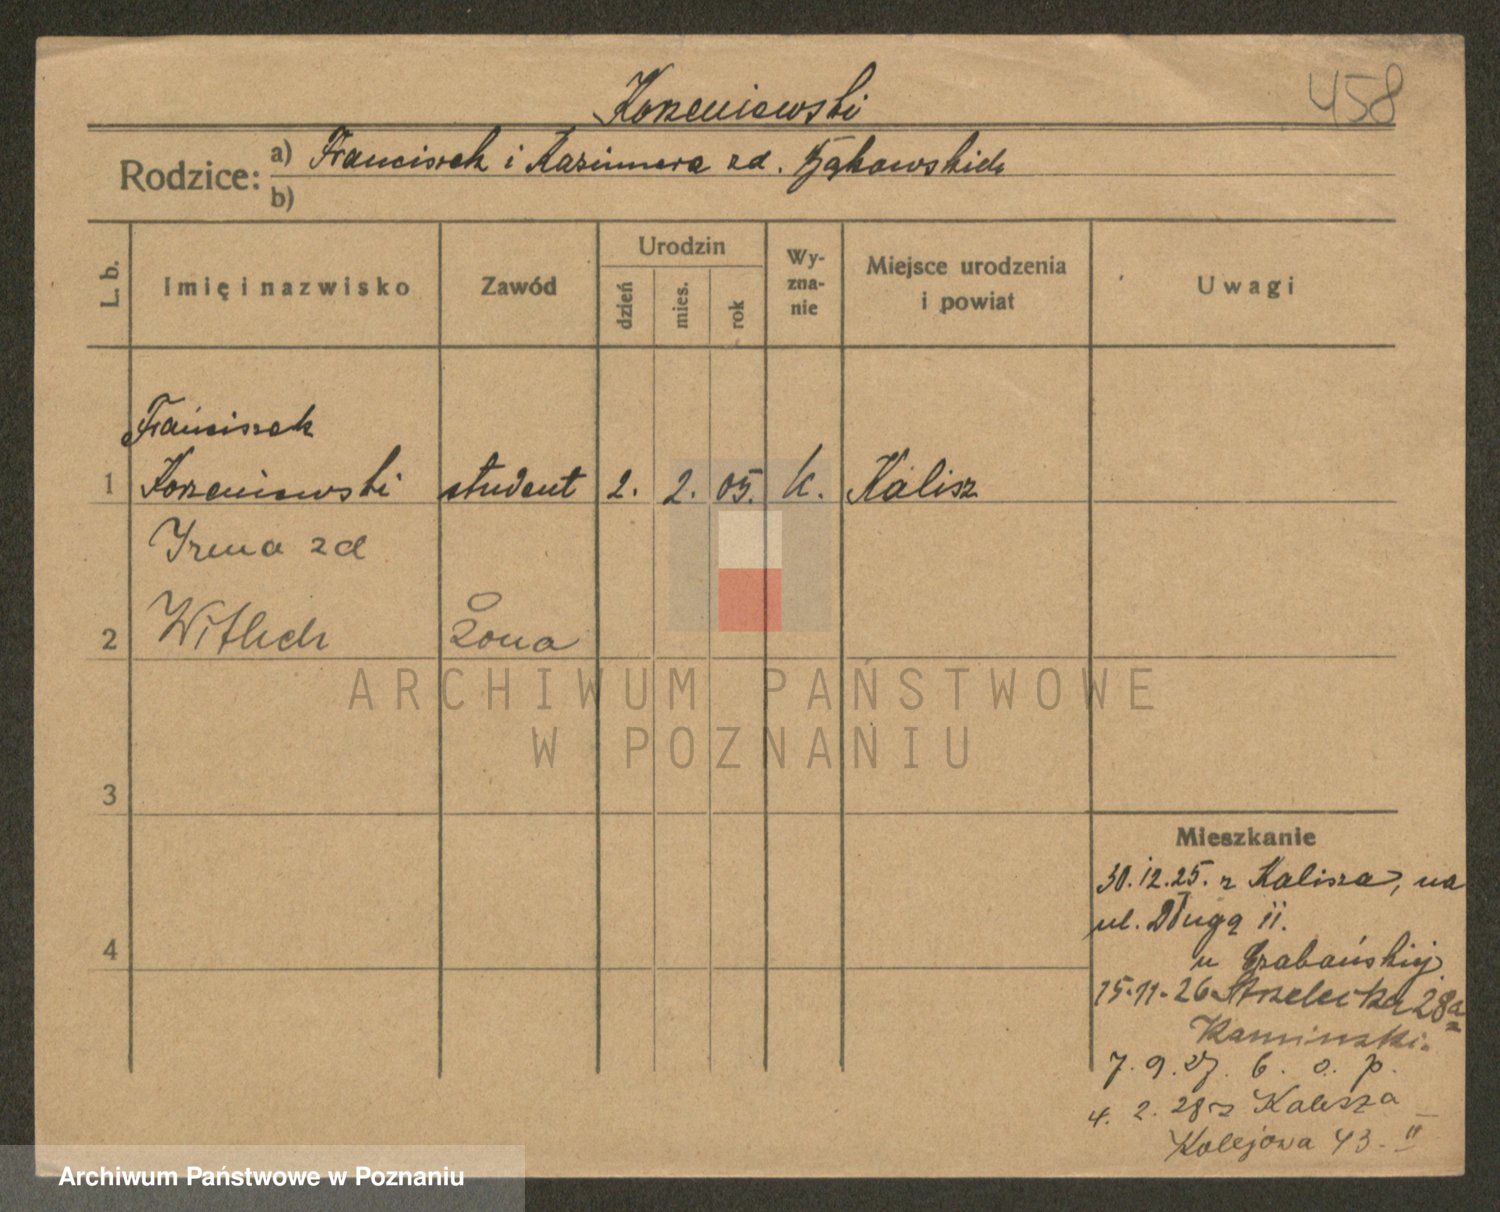 458
Korzeniewski
Rodzice: a) Franciszek i Kazimiera zd. Bąkowskich
b)
L. b. Imię i nazwisko Zawód Urodzin dzień mies. rok Wy-zna-nie Miejsce urodzenia i powiat Uwagi
Franciszek
1 Korzeniewski student 2. 2. 05. k. Kalisz
Irena zd
2 Witlich żona
3
4
Mieszkanie
30.12.25. z Kalisza, na
ul. Długą 11.
u Grabańskiej
15.11.26 Strzelecka 28a
Kaminski.
7. 9. 27. b. o. p.
4. 2. 28 z Kalisza
Kolejowa 43 - II
ARCHIWUM PAŃSTWOWE
W POZNANIU
Archiwum Państwowe w Poznaniu